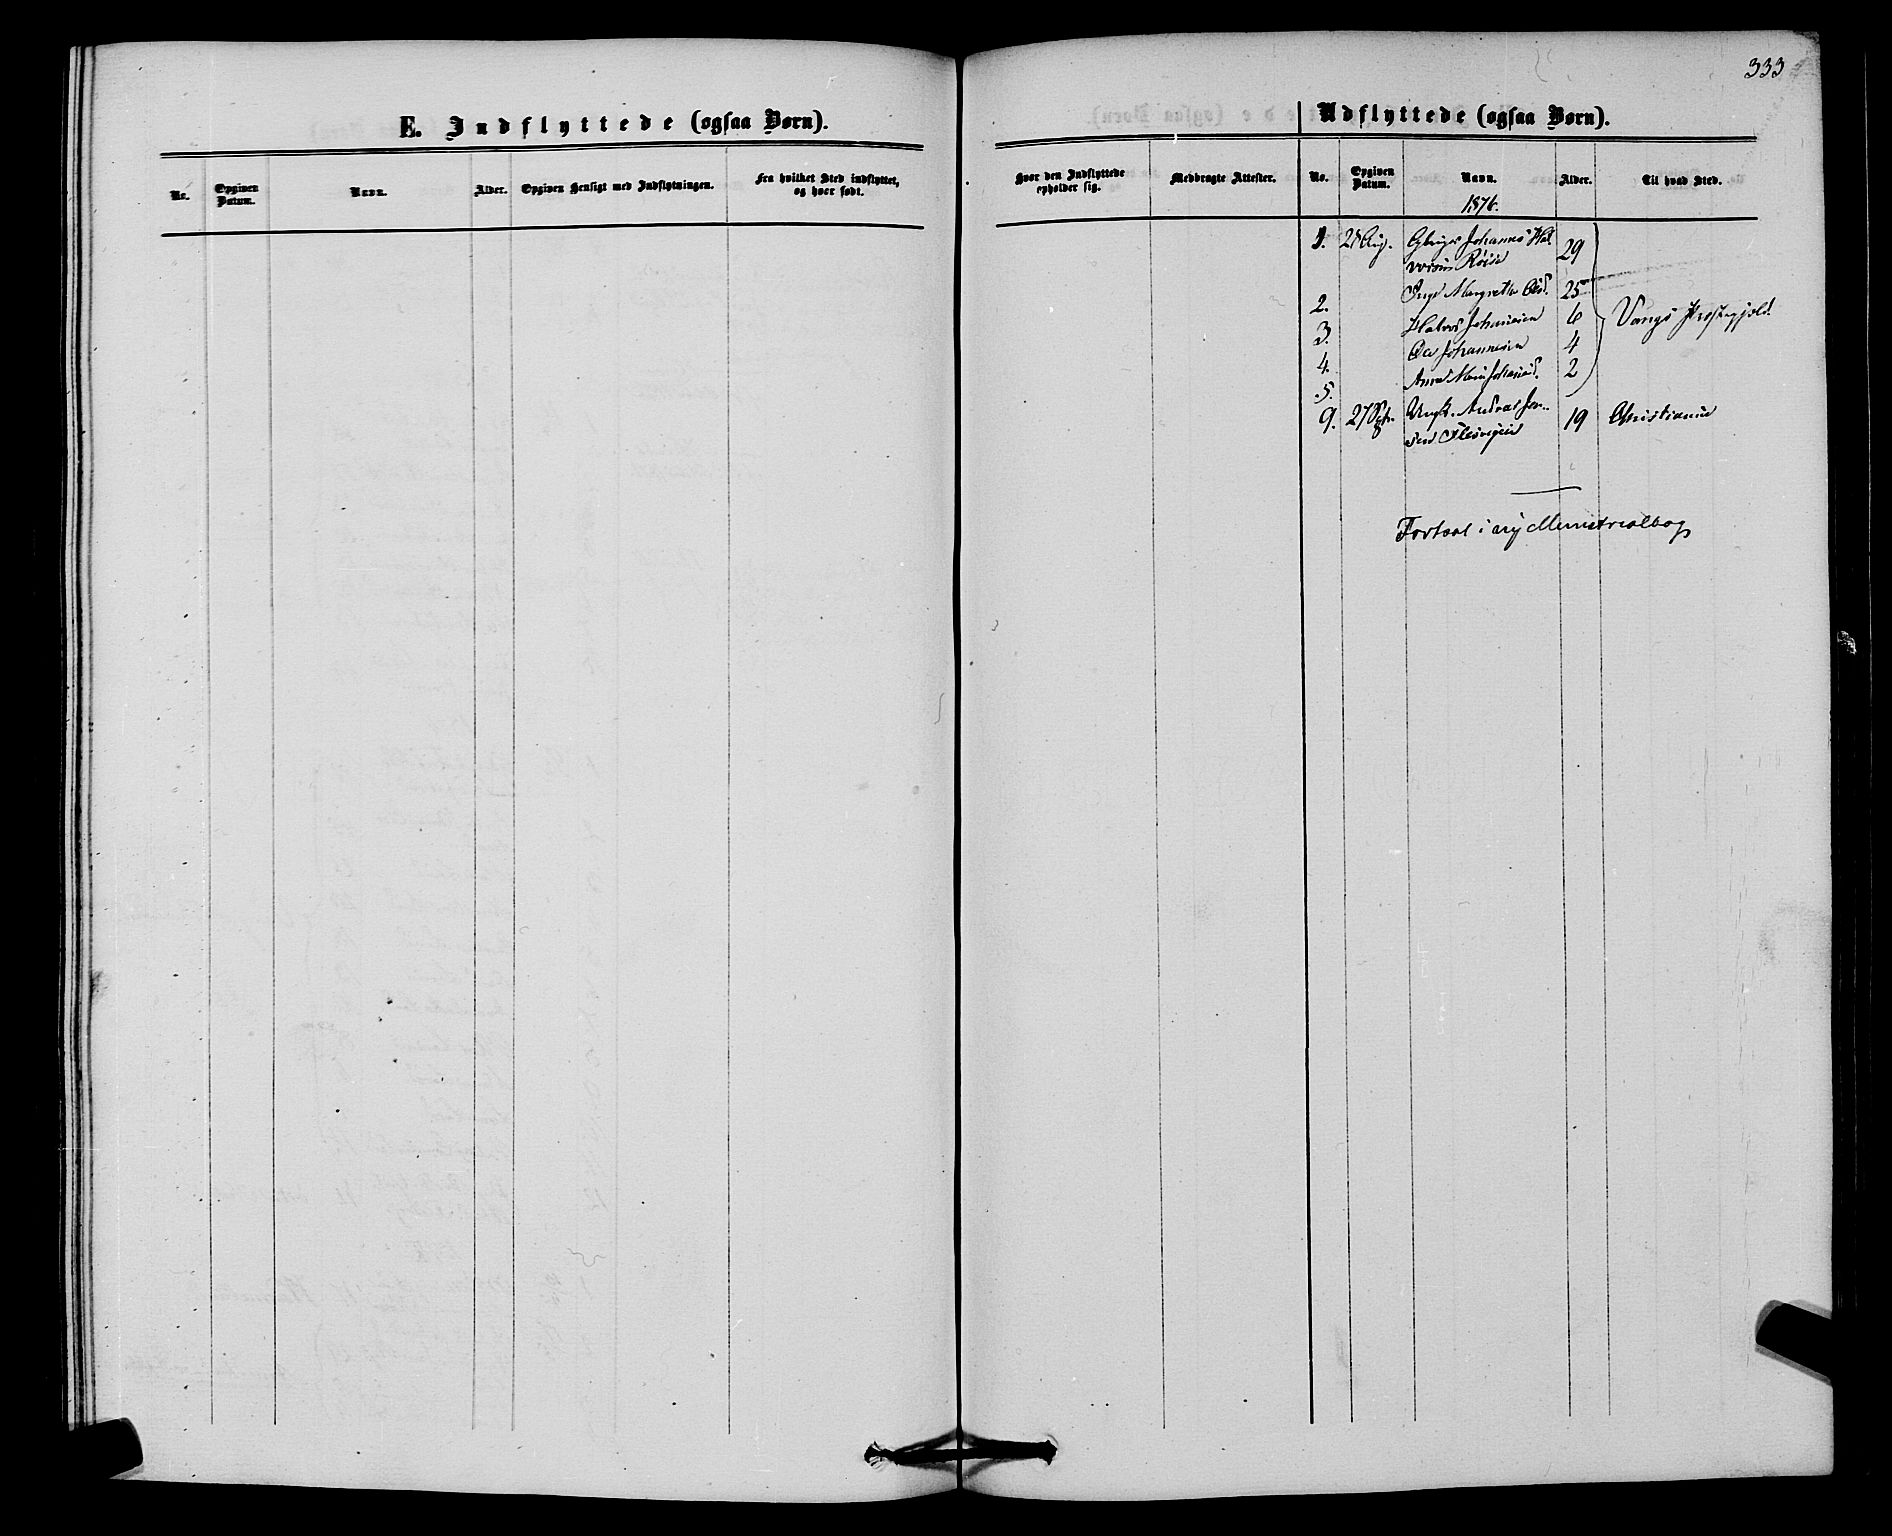 333
E. Indflyttede (ogsaa Børn).
No.
Opgiven Datum.
Navn.
Alder.
Opgiven Hensigt med Indflytningen.
Fra hvilket Sted indflyttet,
og hvor født.
Hvor den Indflyttede
opholder sig.
Medbragte Attester.
Udflyttede (ogsaa Børn).
No.
Opgiven Datum.
Navn.
Alder.
Til hvad Sted.
1876.
1. Aug. Johannes Hal
29
2. Margrethe 25
3. Johannesen 6 Vangs Præstegjeld.
4. Johannesen 4
5. Anne 2
9. 27 Ungk. Andreas 19 Christiania
Fortsat i ny Ministerialbog